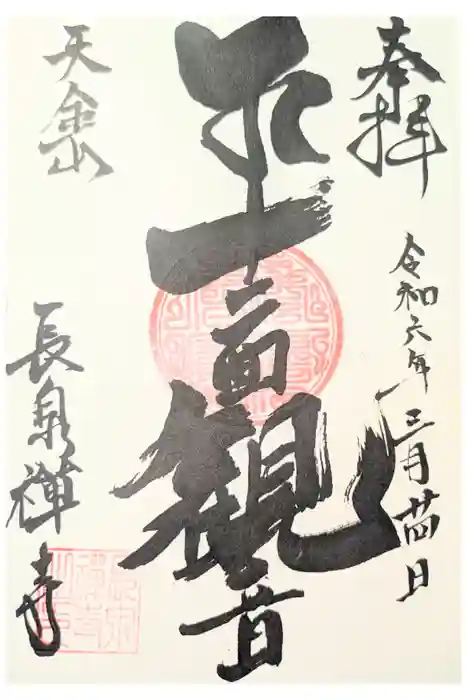 奉拝
令和六年三月廿四日
十一面観音
天倉山
長泉禅寺